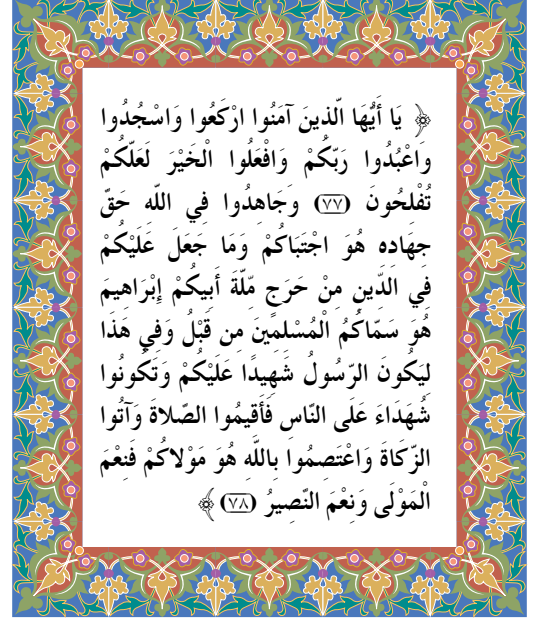 ﴿ يَا أَيُّهَا الَّذِينَ آمَنُوا ارْكَعُوا وَاسْجُدُوا
وَاعْبُدُوا رَبَّكُمْ وَافْعَلُوا الْخَيْرَ لَعَلَّكُمْ
تُفْلِحُونَ (٧٧) وَجَاهِدُوا فِي اللَّهِ حَقَّ
جِهَادِهِ هُوَ اجْتَبَاكُمْ وَمَا جَعَلَ عَلَيْكُمْ
فِي الدِّينِ مِنْ حَرَجٍ مِّلَّةَ أَبِيكُمْ إِبْرَاهِيمَ
هُوَ سَمَّاكُمُ الْمُسْلِمِينَ مِن قَبْلُ وَفِي هَذَا
لِيَكُونَ الرَّسُولُ شَهِيدًا عَلَيْكُمْ وَتَكُونُوا
شُهَدَاءَ عَلَى النَّاسِ فَأَقِيمُوا الصَّلاةَ وَآتُوا
الزَّكَاةَ وَاعْتَصِمُوا بِاللَّهِ هُوَ مَوْلاكُمْ فَنِعْمَ
الْمَوْلَى وَنِعْمَ النَّصِيرُ (٧٨) ﴾